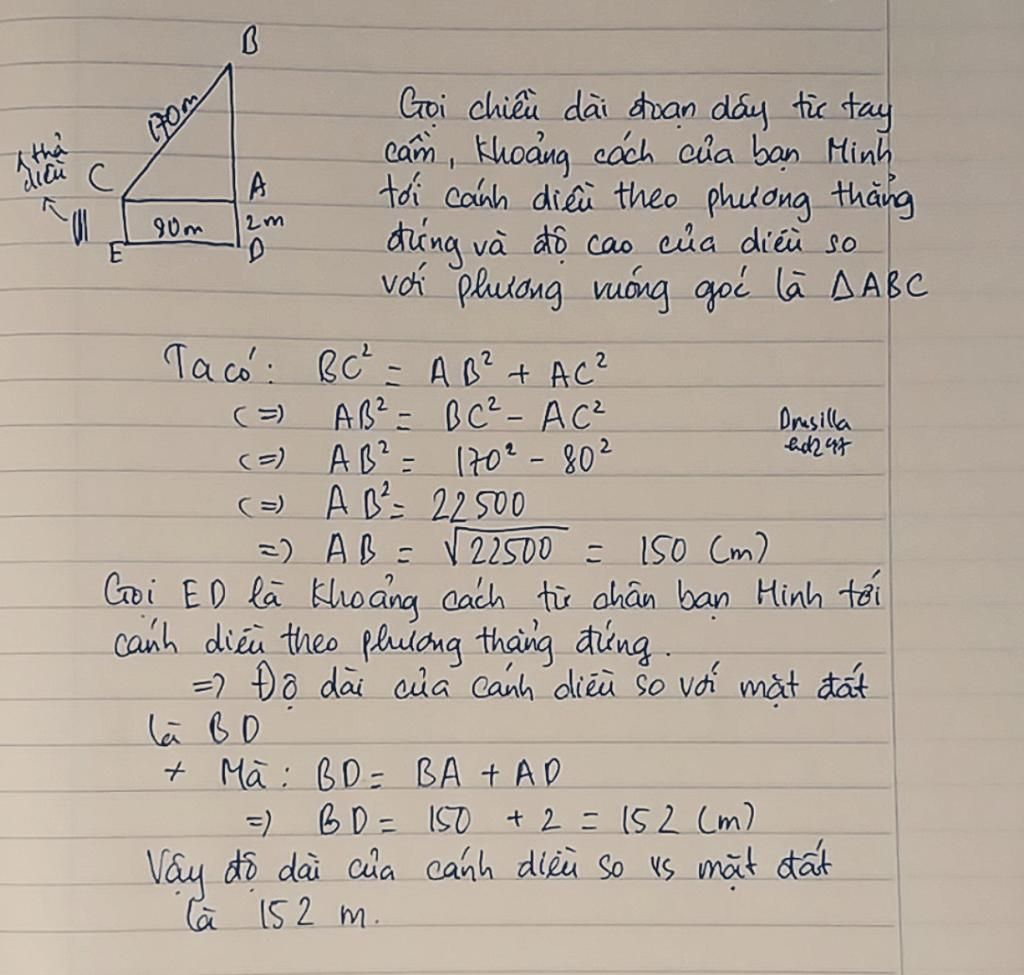 B
170m
thả
diều
C
A
80m
2m
E
D
Gọi chiều dài đoạn dây từ tay
cầm, khoảng cách của bạn Minh
tới cánh diều theo phương thẳng
đứng và độ cao của diều so
với phương vuông góc là ΔABC
Ta có: BC² = AB² + AC²
(=) AB² = BC² - AC²
(=) AB² = 170² - 80²
(=) AB² = 22500
=) AB = √22500 = 150 (m)
Drusilla
Gọi ED là khoảng cách từ chân bạn Minh tới
cánh diều theo phương thẳng đứng.
=) Độ dài của cánh diều so với mặt đất
là BD
+ Mà: BD = BA + AD
=) BD = 150 + 2 = 152 (m)
Vậy độ dài của cánh diều so vs mặt đất
là 152 m.